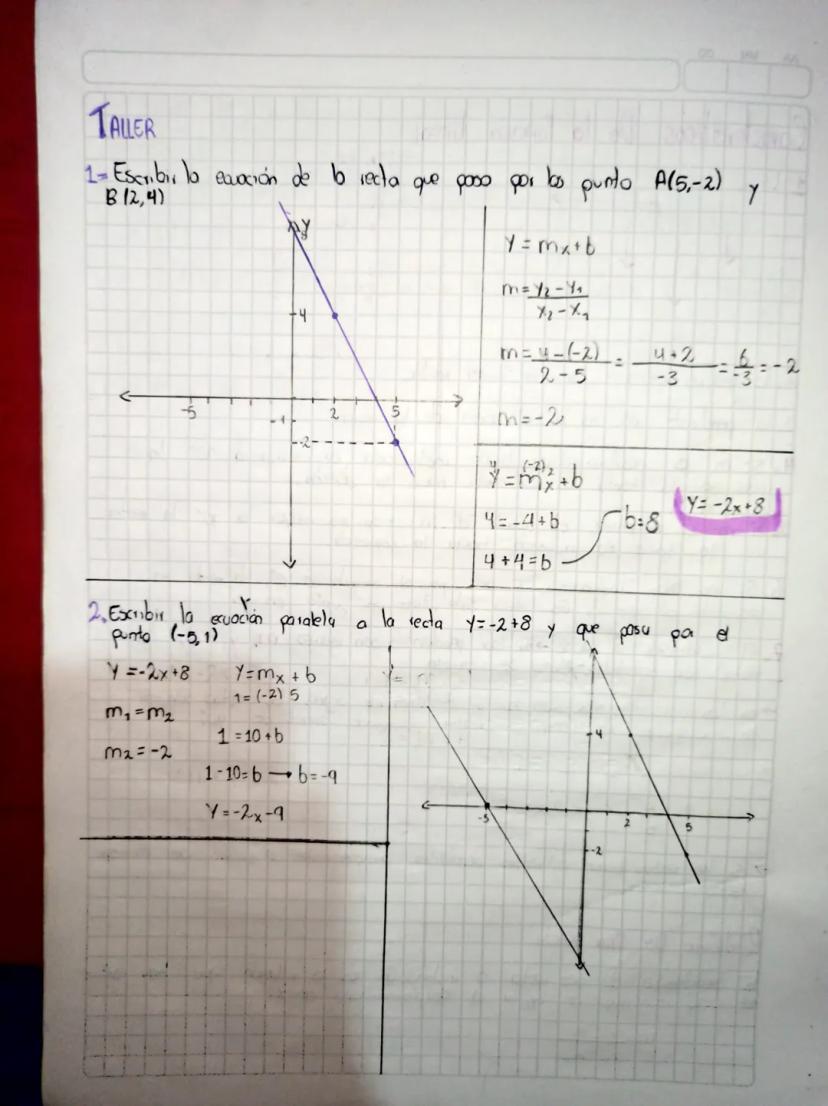 TALLER
1= Escribir la ecuación de la recta que pasa por los punto A(5,-2) y
B(2,4)
y
8
4
-5
-1
2
5
-2
Y = mx+b
m = y₂ - y₁ / x₂ - x₁
m = 4-(-2) / 2-5 = 4+2 / -3 = 6 / -3 = -2
m = -2
4 (-2)2
Y = mx + b
4 = -4+b
4+4=b
b=8
Y= -2x+8
2. Escribir la ecuación paralela a la recta Y=-2+8 y que pasa por el
punto (-5,1)
Y = -2x+8
m₁ = m₂
m₂ = -2
Y=mx + b
1= (-2) 5
1 = 10+b
1-10=b → b=-9
Y = -2x-9
Y=
4
-5
2
5
-2